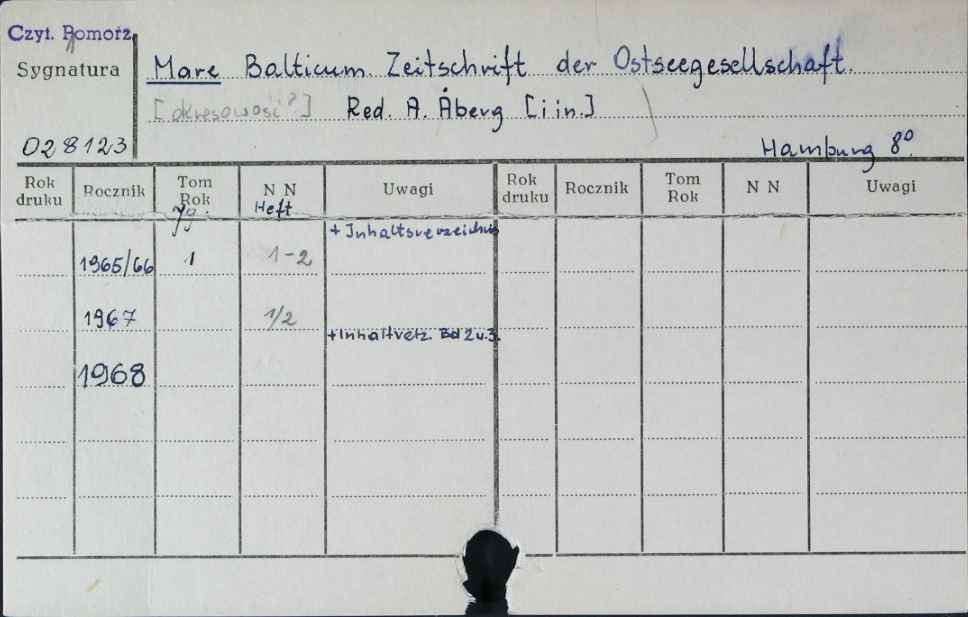 Czyt. Pomorz.
Sygnatura
Mare Balticum. Zeitschrift der Ostseegesellschaft.
[okresowość?] Red. A. Åberg [i in.]
028123
Hamburg 8°
Rok druku Rocznik Tom Rok N N Uwagi Rok druku Rocznik Tom Rok N N Uwagi
Jg. Heft
+ Inhaltsverzeichnis
1965/66 1 1-2
1967 1/2
+Inhaltverz. Bd 2 u. 3.
1968